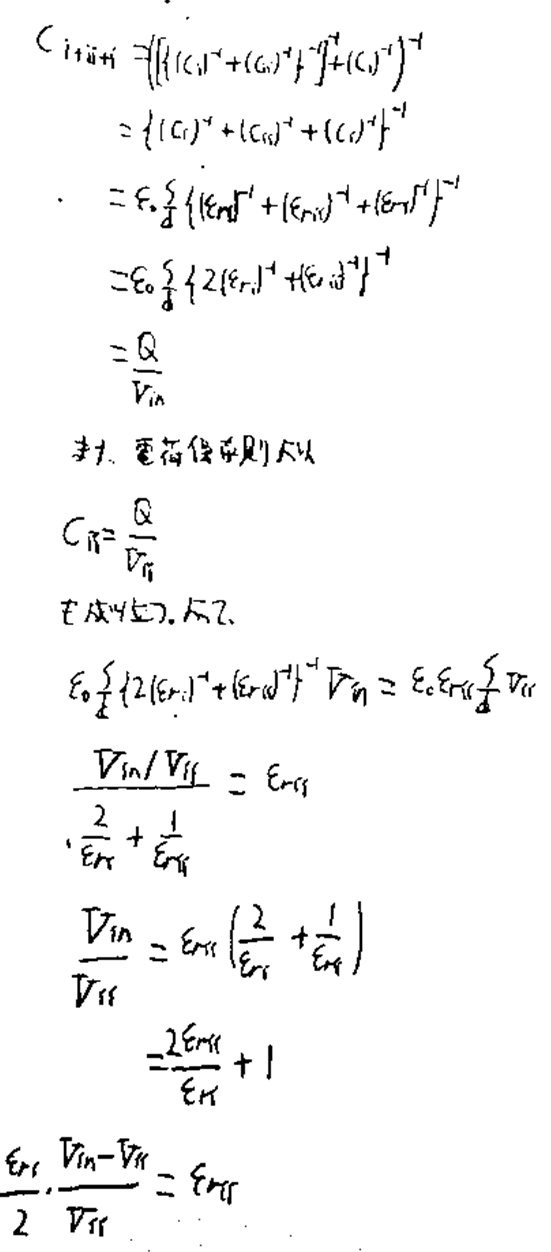 C_{i+ii+i} = ([{(C_i)^{-1}+(C_{ii})^{-1}}^{-1}]^{-1}+(C_i)^{-1})^{-1}
= {(C_i)^{-1}+(C_{ii})^{-1}+(C_i)^{-1}}^{-1}
= ε_0 S/d {(ε_{ri})^{-1}+(ε_{rii})^{-1}+(ε_{ri})^{-1}}^{-1}
= ε_0 S/d {2(ε_{ri})^{-1}+(ε_{rii})^{-1}}^{-1}
= Q/V_{in}
また、電荷保存則より
C_{ii} = Q/V_{ii}
も成り立つ。よって、
ε_0 S/d {2(ε_{ri})^{-1}+(ε_{rii})^{-1}}^{-1} V_{in} = ε_0 ε_{rii} S/d V_{ii}
(V_{in}/V_{ii})/(2/ε_{ri} + 1/ε_{rii}) = ε_{rii}
V_{in}/V_{ii} = ε_{rii} (2/ε_{ri} + 1/ε_{rii})
= 2ε_{rii}/ε_{ri} + 1
ε_{ri}/2 · (V_{in}-V_{ii})/V_{ii} = ε_{rii}